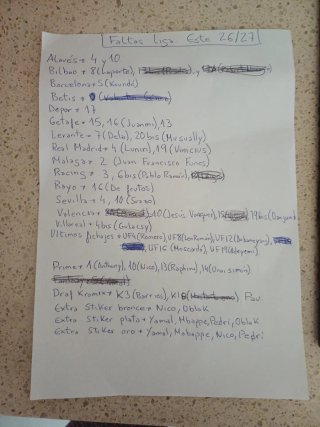 Faltas liga Este 26/27
Alavés → 4 y 10
Bilbao → 8 (Laporte), y
Barcelona → 5 (Kounde)
Betis →
Depor → 17
Getafe → 15, 16 (Juanmi), 13
Levante → 7 (Dela), 20 bis (Musually)
Real Madrid → 4 (Lunin), 19 (Vinicius)
Malaga → 2 (Juan Francisco Funes)
Racing → 3, 6 bis (Pablo Ramón),
Rayo → 16 (De frutos)
Sevilla → 4, 10 (Sozo)
Valencia → 10 (Jesús Vazquez), 19 bis
Villareal → 4 bis
Ultimos fichajes → UF4 (Romero), UF8, UF12
UF16 (Moscardo), UF19 (Adeyemi)
Prime → 1 (Anthony), 10 (Nico), 13 (Raphini), 14 (Unai simón)
Draf Kromix → K3 (Barrios), K1 Pau
Extra Stiker bronce → Nico, Oblak
Extra Stiker plata → Yamal, Mbappe, Pedri, Oblak
Extra Stiker oro → Yamal, Mbappe, Nico, Pedri